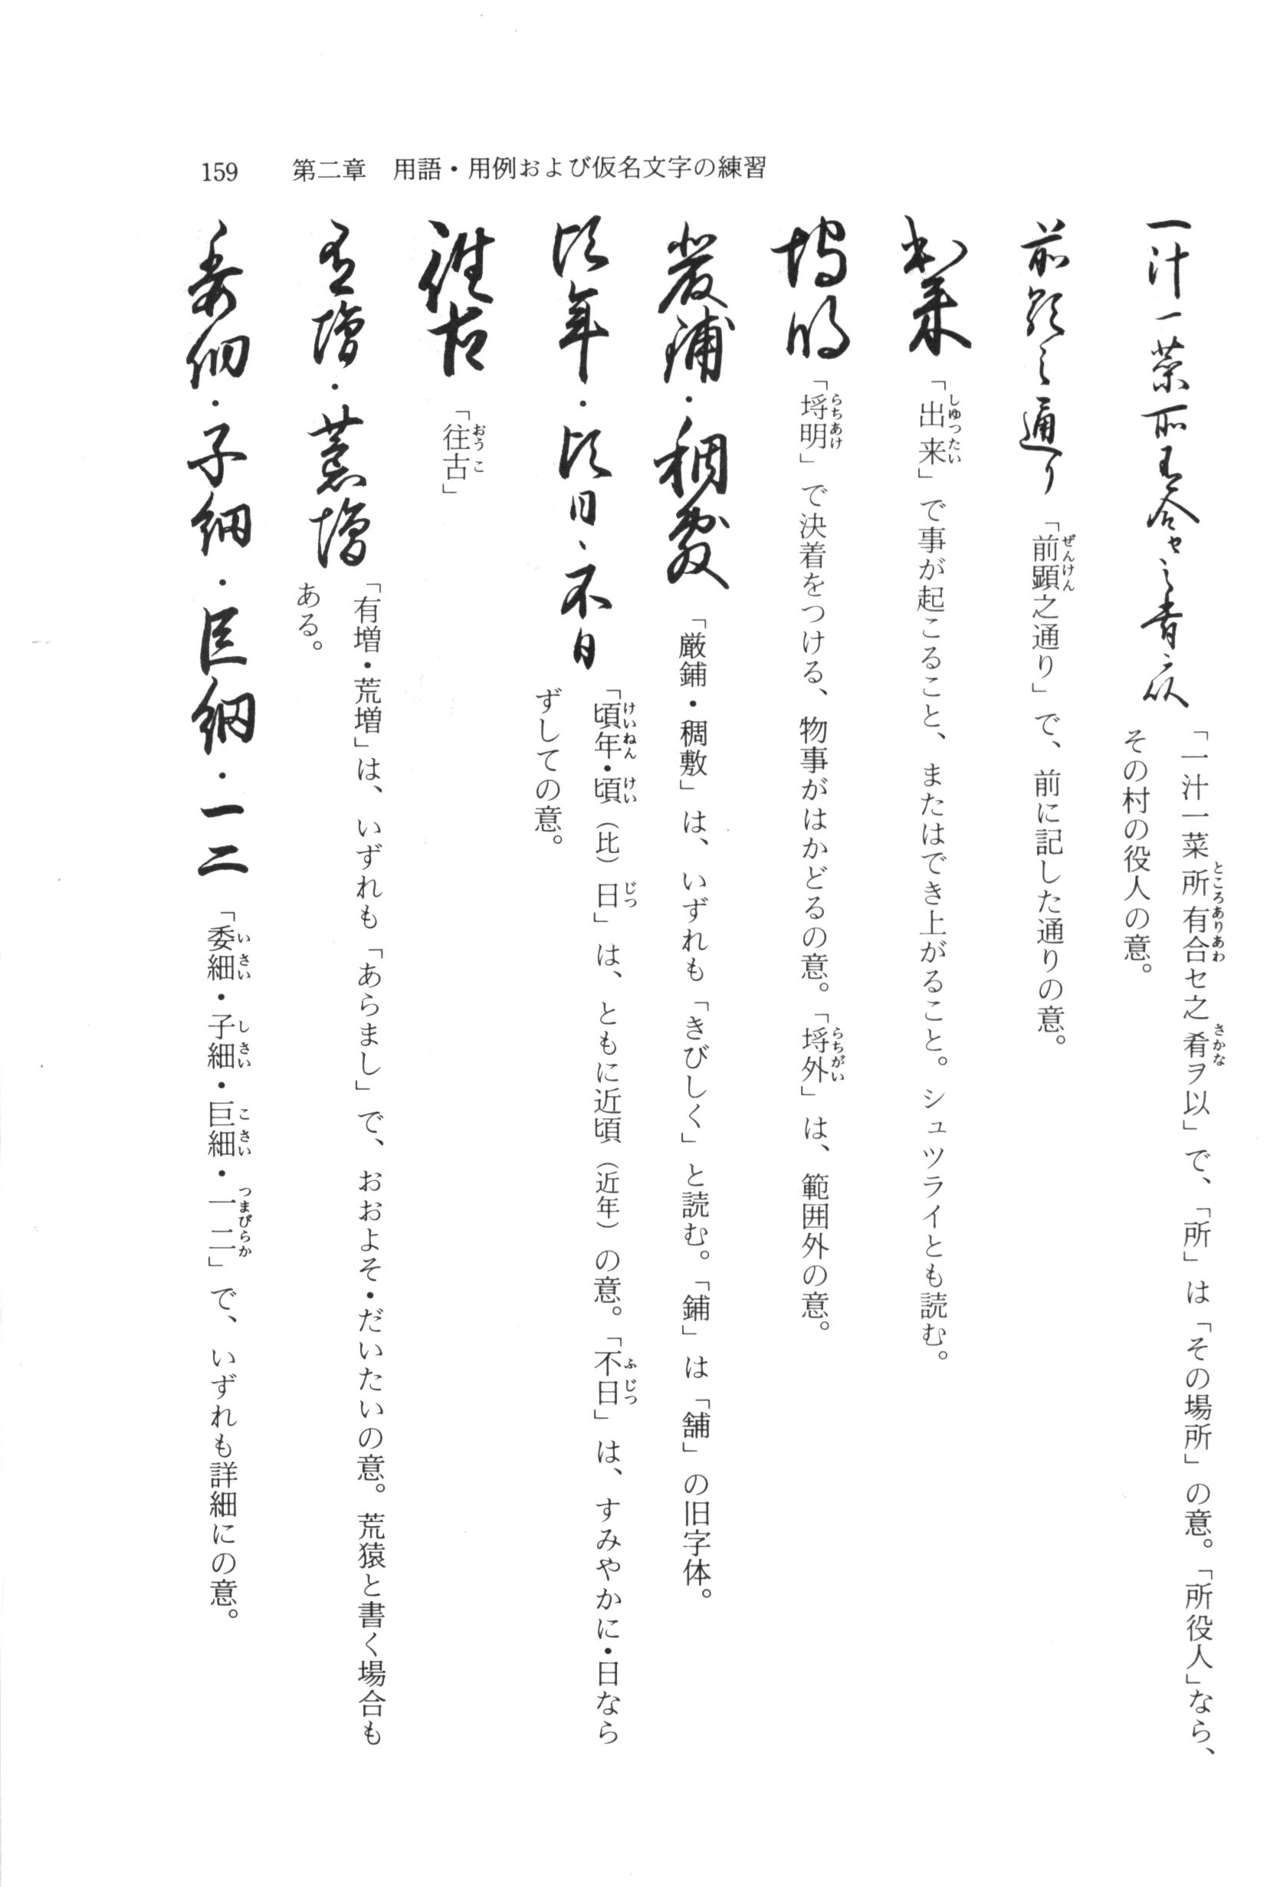 159　第二章　用語・用例および仮名文字の練習
一汁一菜所有合セ之肴ヲ以
「一汁一菜所有合セ之肴ヲ以」で、「所」は「その場所」の意。「所役人」なら、
その村の役人の意。
前顕之通り
「前顕之通り」で、前に記した通りの意。
出来
「出来」で事が起こること、またはでき上がること。シュツライとも読む。
埒明
「埒明」で決着をつける、物事がはかどるの意。「埒外」は、範囲外の意。
厳鋪・稠敷
「厳鋪・稠敷」は、いずれも「きびしく」と読む。「鋪」は「舗」の旧字体。
頃年・頃日、不日
「頃年・頃（比）日」は、ともに近頃（近年）の意。「不日」は、すみやかに・日なら
ずしての意。
往古
「往古」
有増・荒増
「有増・荒増」は、いずれも「あらまし」で、おおよそ・だいたいの意。荒猿と書く場合も
ある。
委細・子細・巨細・一二
「委細・子細・巨細・一二」で、いずれも詳細にの意。